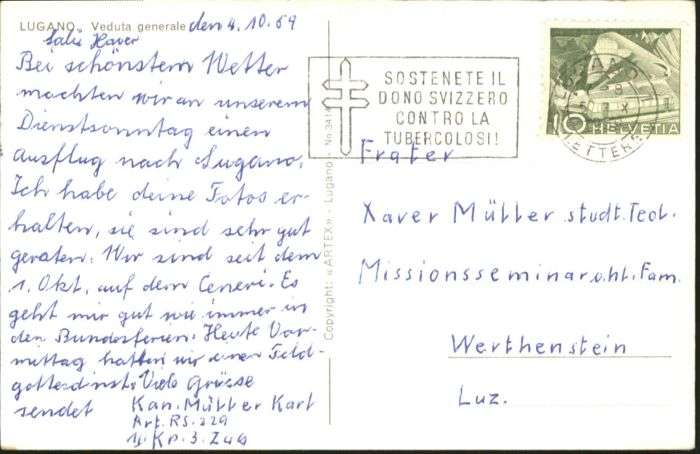 LUGANO - Veduta generale den 4. 10. 59
Salü Xäver
Bei schönstem Wetter
machten wir an unserem
Dienstsonntag einen
Ausflug nach Lugano.
Ich habe deine Fotos er-
halten, sie sind sehr gut
geraten. Wir sind seit dem
1. Okt. auf dem Ceneri. Es
geht mir gut wie immer in
den Bundesferien. Heute Vor-
mittag hatten wir einen Feld-
gottesdinst. Viele Grüsse
sendet Kan. Mütter Karl
Art. RS. 229
Kp. 3. Zug
Copyright: «ARTEX» - Lugano - No
SOSTENETE IL
DONO SVIZZERO
CONTRO LA
TUBERCOLOSI!
10 HELVETIA
Frater
Xaver Mütter studt. Teol.
Missionsseminar v. hl. Fam.
Werthenstein
Luz.